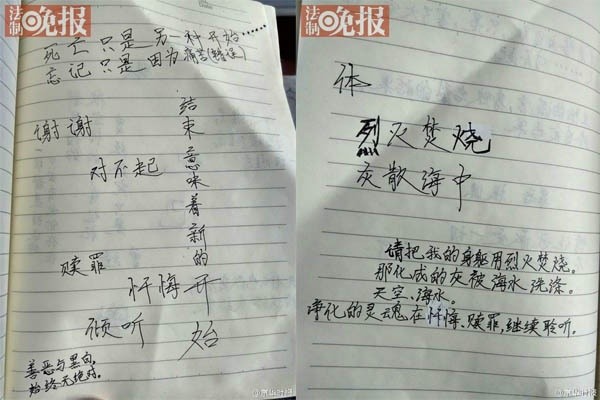 法制晚报
死亡只是另一种开始……
忘记只是因为痛苦(错误)
结束意味着新的开始
谢谢
对不起
赎罪
忏悔
倾听
善恶与黑白,
始终无绝对。
法制晚报
体
烈火焚烧
灰散海中
请把我的身躯用烈火焚烧。
那化成的灰被海水洗涤。
天空、海水。
净化的灵魂在忏悔、赎罪,继续聆听。